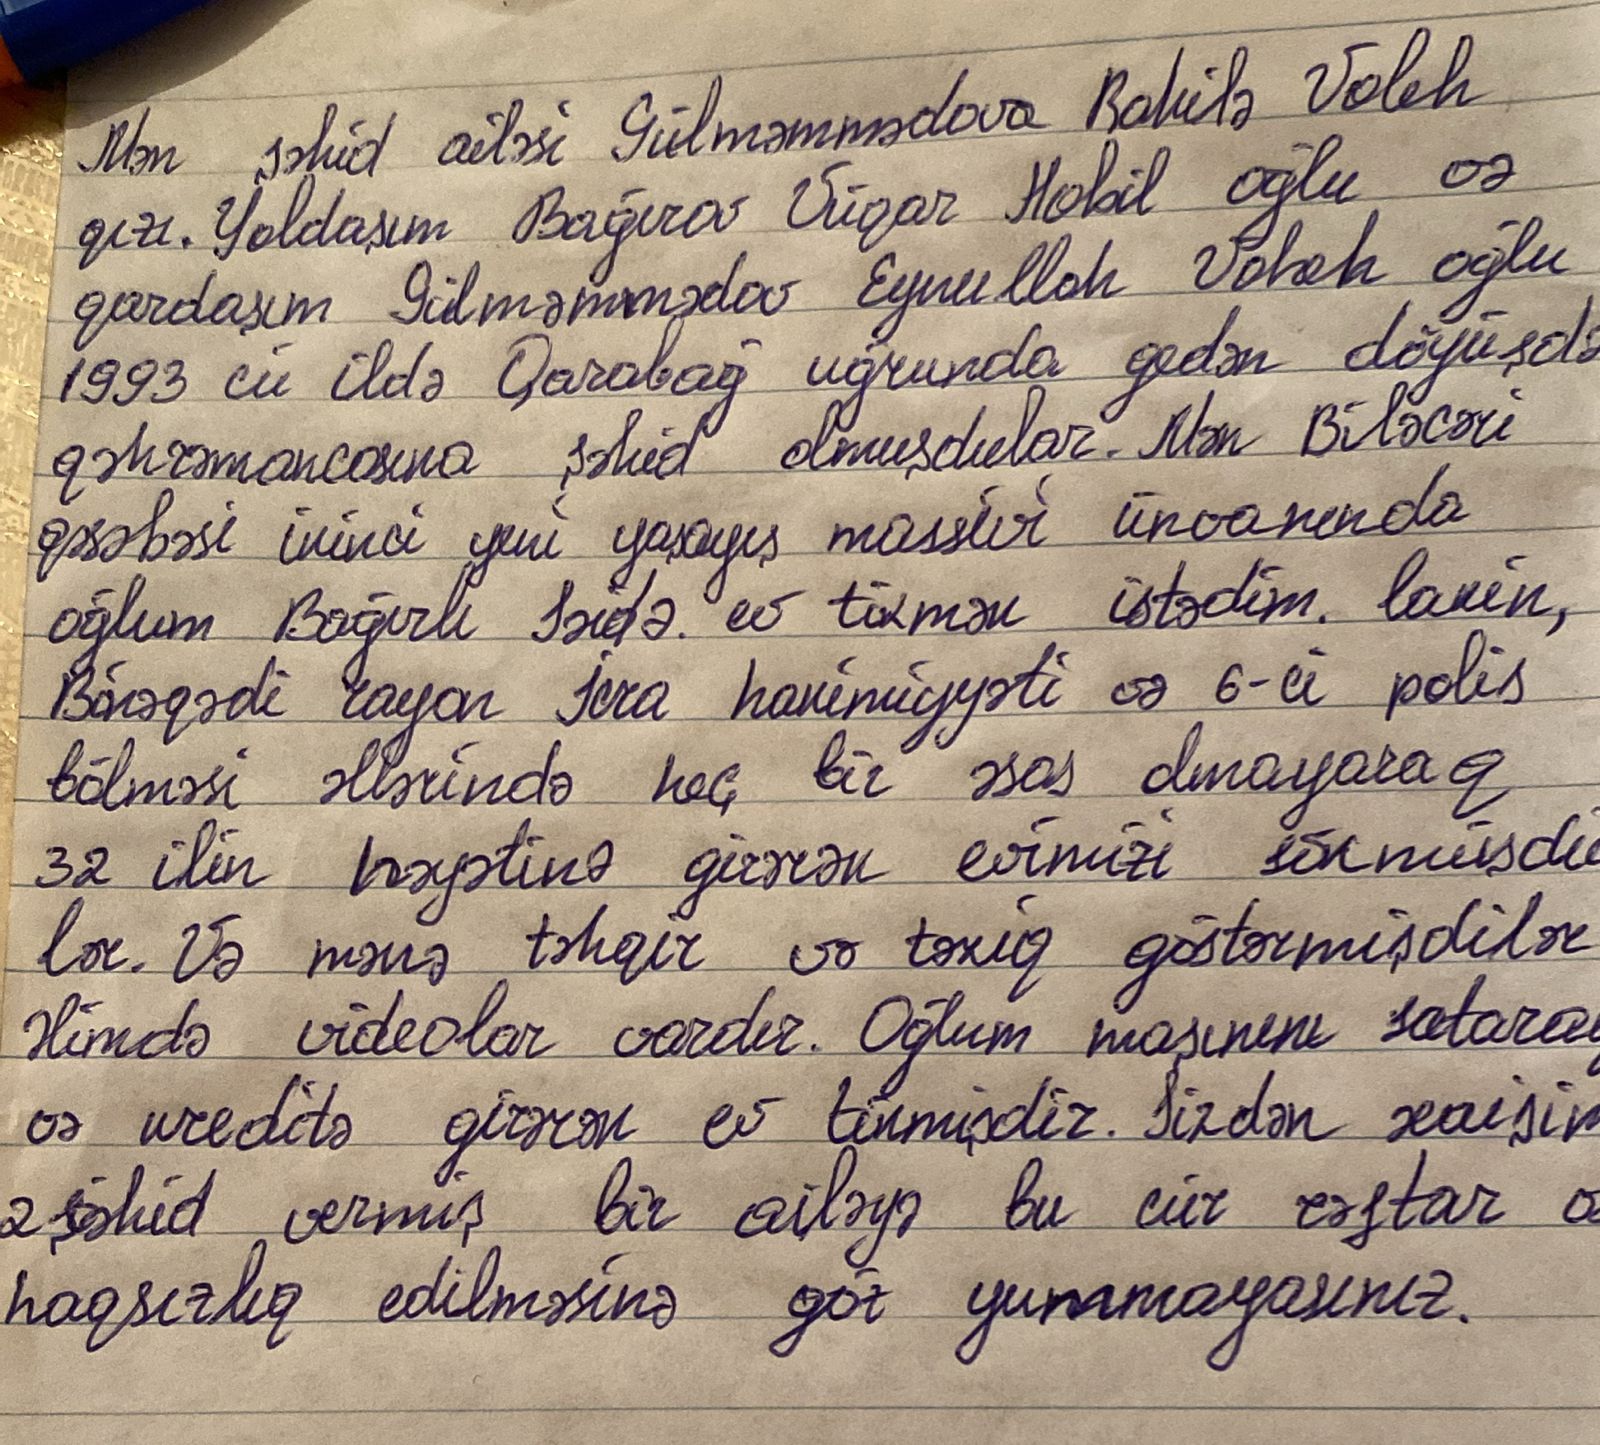 Mən şəhid ailəsi Gülməmmədova Rahilə Valeh
qızı. Yoldaşım Bağırov Vüqar Habil oğlu və
qardaşım Gülməmmədov Eynullah Valeh oğlu
1993 cü ildə Qarabağ uğrunda gedən döyüşdə
qəhrəmancasına şəhid olmuşdular. Mən Biləcəri
qəsəbəsi ikinci yeni yaşayış massivi ünvanında
oğlum Bağırlı Səidə. ev tikmək istədim. lakin,
Binəqədi rayon İcra hakimiyyəti və 6-ci polis
bölməsi əllərində heç bir əsas olmayaraq
32 ilin həyətinə girərək evimizi sökmüşdü
lər. Və mənə təhqir və təziq göstərmişdilər
Himdə videolar vardır. Oğlum maşınını sataraq
və kreditə girərək ev tikmişdir. Sizdən xaişim
2 şəhid vermiş bir ailəyə bu cür rəftar və
haqsızlıq edilməsinə göz yummayasınız.